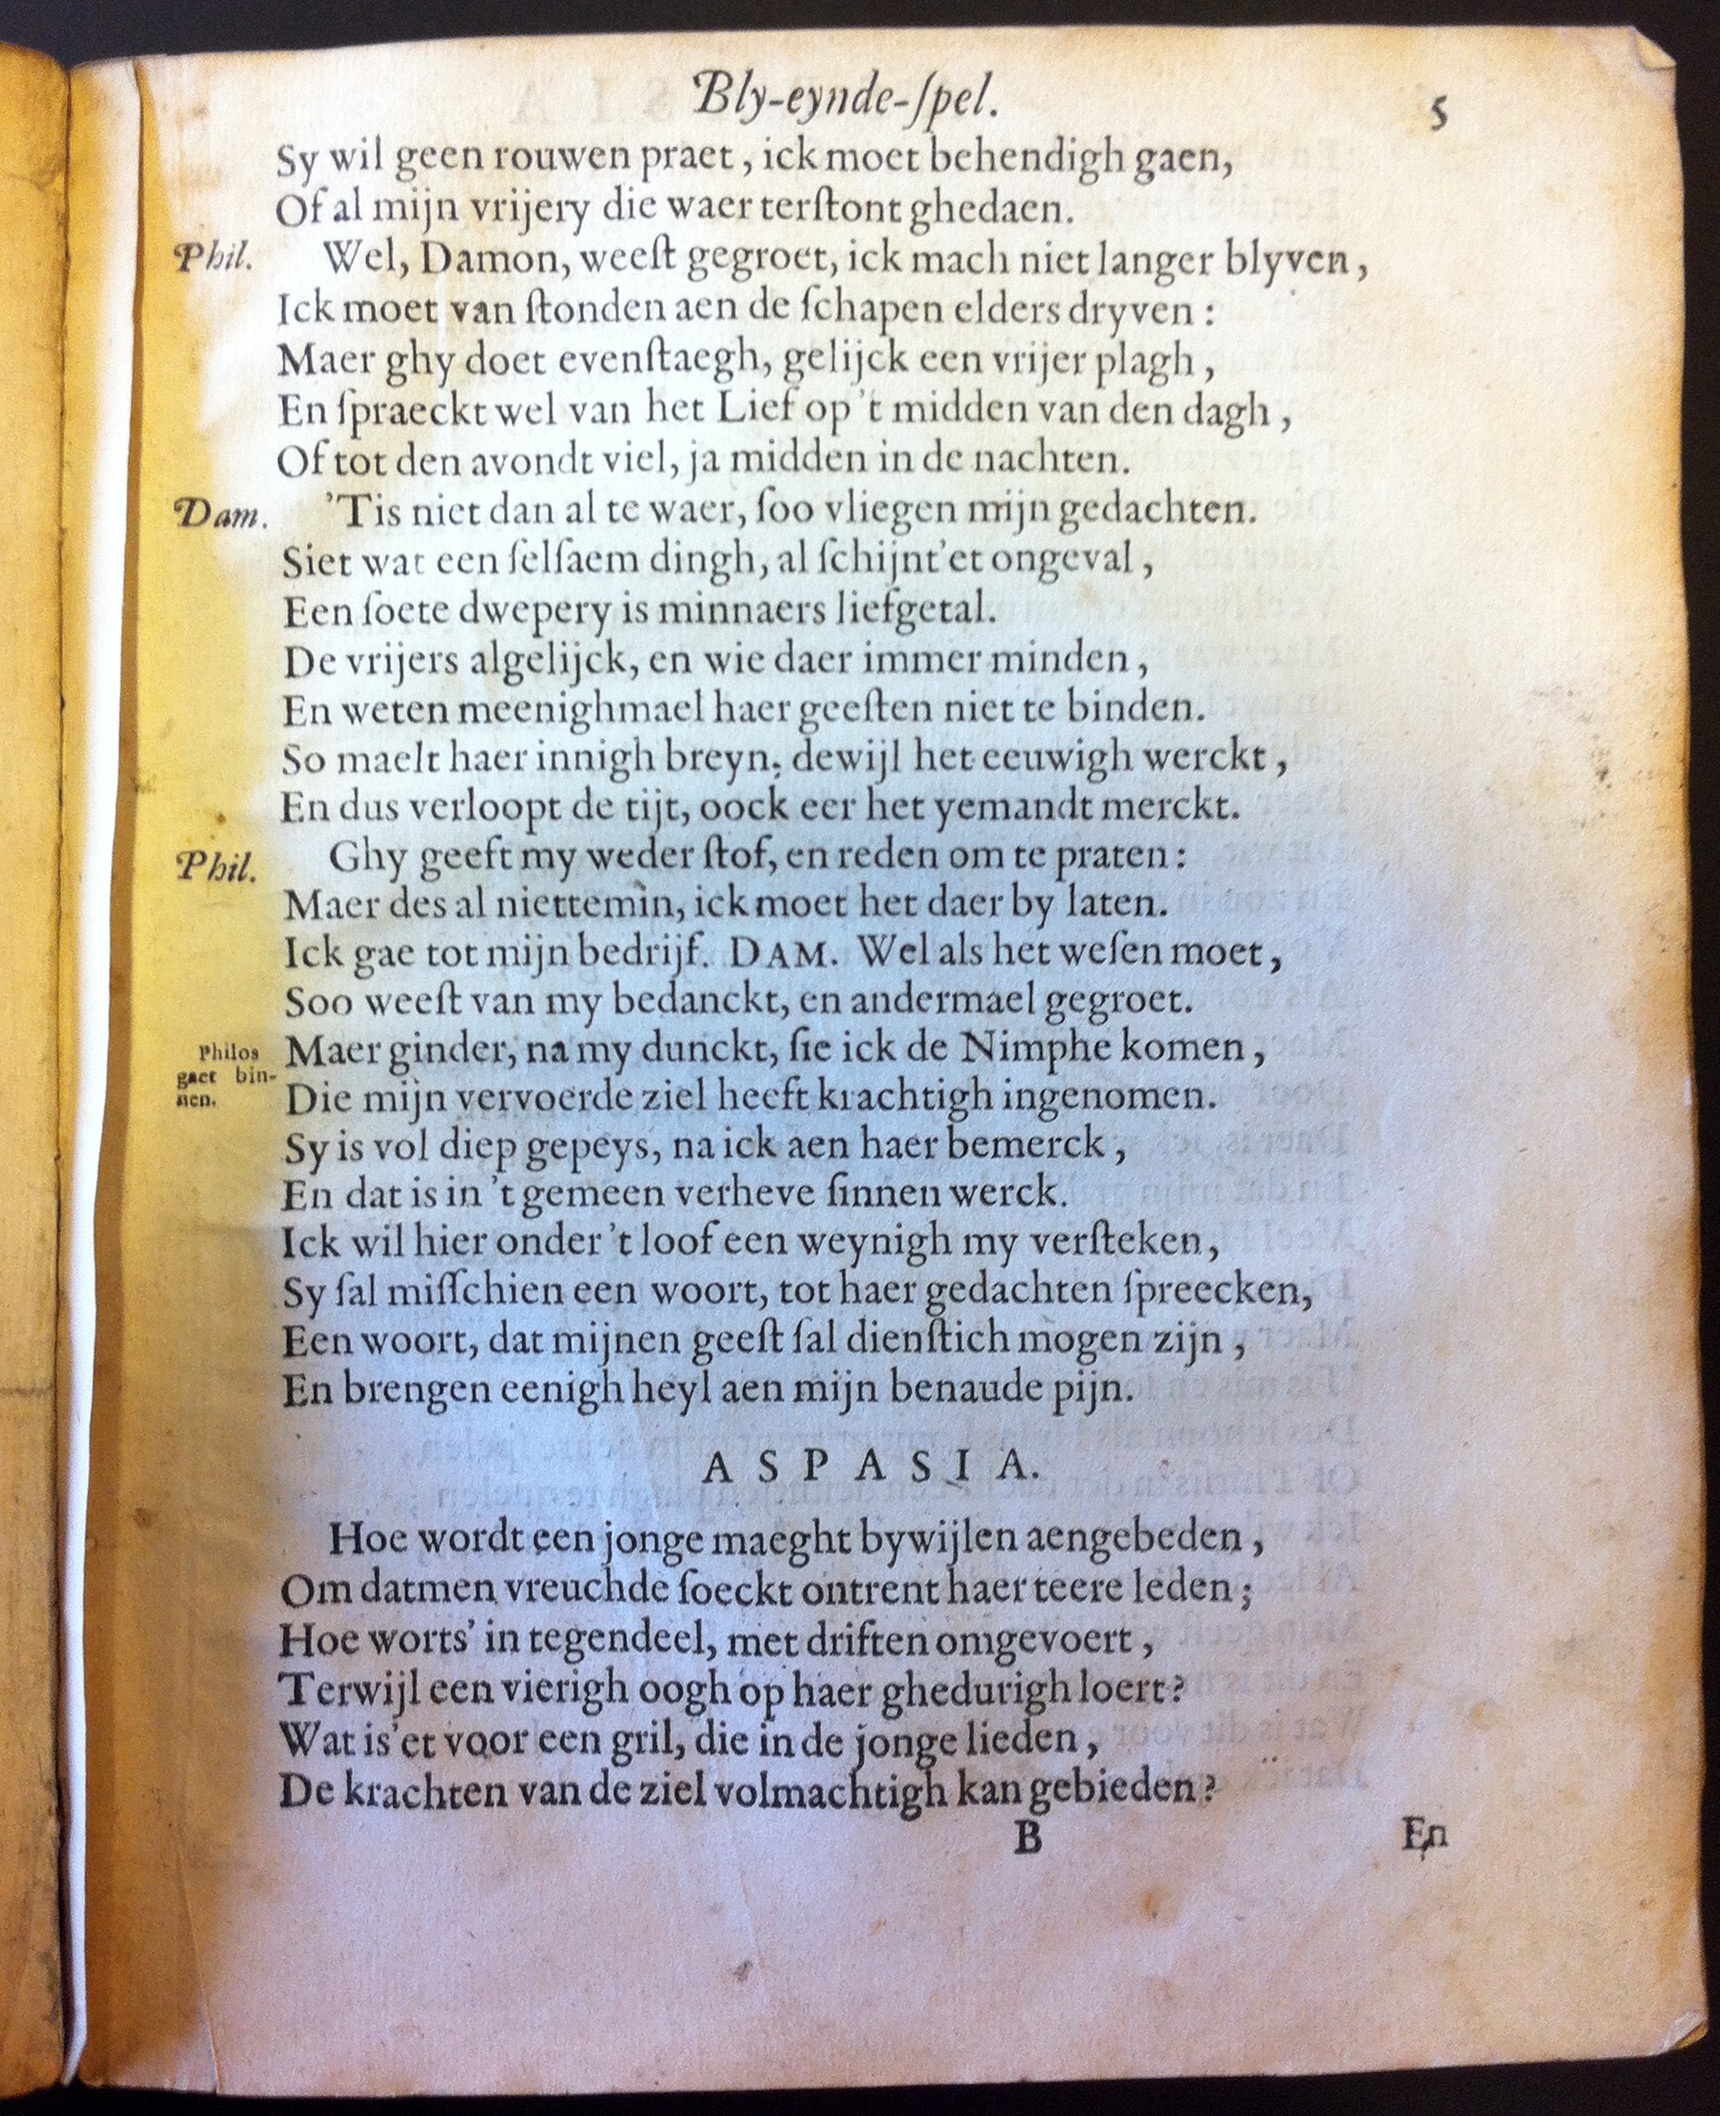 Bly-eynde-ſpel. 5
Sy wil geen rouwen praet, ick moet behendigh gaen,
Of al mijn vrijery die waer terſtont ghedaen.
Phil. Wel, Damon, weeſt gegroet, ick mach niet langer blyven,
Ick moet van ſtonden aen de ſchapen elders dryven:
Maer ghy doet evenſtaegh, gelijck een vrijer plagh,
En ſpraeckt wel van het Lief op 't midden van den dagh,
Of tot den avondt viel, ja midden in de nachten.
Dam. 'Tis niet dan al te waer, ſoo vliegen mijn gedachten.
Siet wat een ſelſaem dingh, al ſchijnt'et ongeval,
Een ſoete dwepery is minnaers liefgetal.
De vrijers algelijck, en wie daer immer minden,
En weten meenighmael haer geeſten niet te binden.
So maelt haer innigh breyn, dewijl het eeuwigh werckt,
En dus verloopt de tijt, oock eer het yemandt merckt.
Phil. Ghy geeft my weder ſtof, en reden om te praten:
Maer des al niettemin, ick moet het daer by laten.
Ick gae tot mijn bedrijf. DAM. Wel als het weſen moet,
Soo weeſt van my bedanckt, en andermael gegroet.
Philos gaet bin-nen. Maer ginder, na my dunckt, ſie ick de Nimphe komen,
Die mijn vervoerde ziel heeft krachtigh ingenomen.
Sy is vol diep gepeys, na ick aen haer bemerck,
En dat is in 't gemeen verheve ſinnen werck.
Ick wil hier onder 't loof een weynigh my verſteken,
Sy ſal miſſchien een woort, tot haer gedachten ſpreecken,
Een woort, dat mijnen geeſt ſal dienſtich mogen zijn,
En brengen eenigh heyl aen mijn benaude pijn.
ASPASIA.
Hoe wordt een jonge maeght bywijlen aengebeden,
Om datmen vreuchde ſoeckt ontrent haer teere leden;
Hoe worts' in tegendeel, met driften omgevoert,
Terwijl een vierigh oogh op haer ghedurigh loert?
Wat is'et voor een gril, die in de jonge lieden,
De krachten van de ziel volmachtigh kan gebieden?
B En